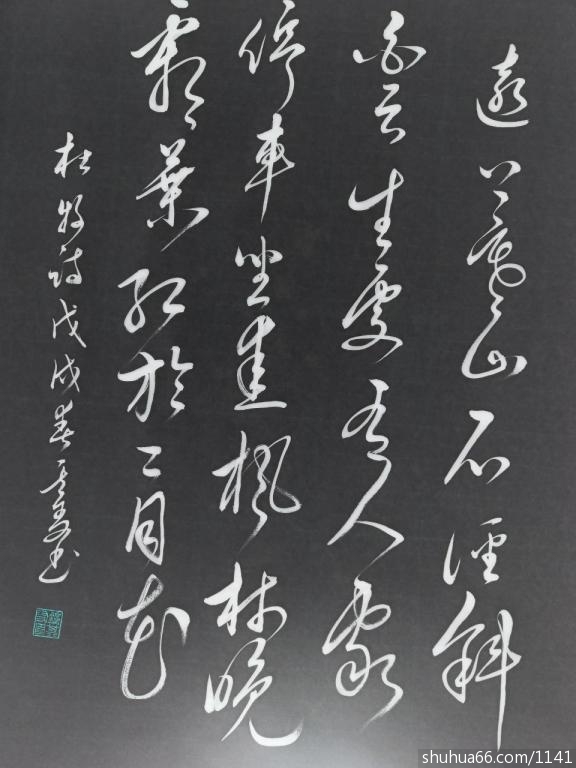 遠上寒山石徑斜
白云生處有人家
停車坐愛楓林晚
霜葉紅於二月花
杜牧詩戊戌春書
shuhua66.com/1141